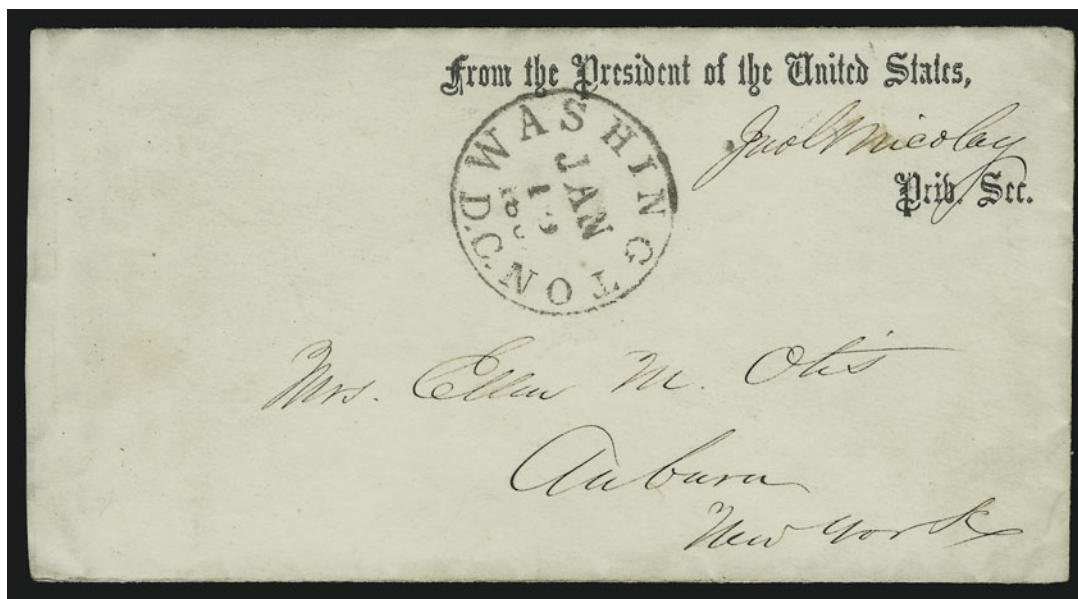 From the President of the United States,
Jno G Nicolay
Priv. Sec.
WASHINGTON D.C.
JAN
Mrs. Ellen M. Otis
Auburn
New York